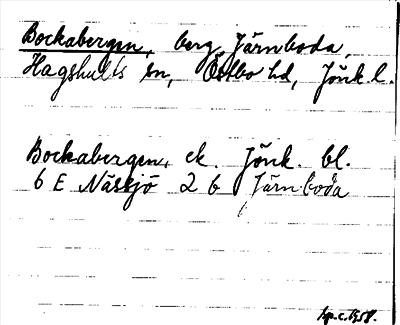 Bockabergen, berg, Järnboda,
Hagshults sn, Östbo hd, Jönk. l.
Bockabergen, ek. Jönk. bl.
6 E Nässjö 2 b Järnboda